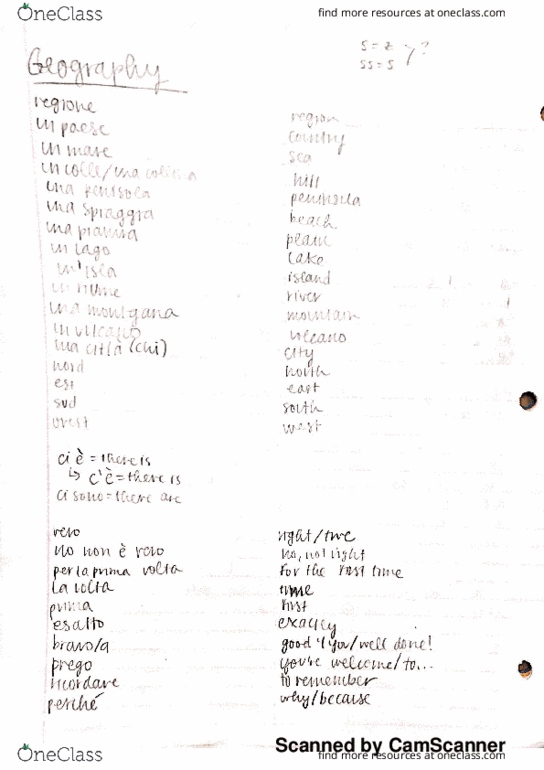 OneClass
find more resources at oneclass.com
s = z
ss = s } ?
Geography
regione region
un paese country
un mare sea
un colle/una collina hill
una penisola peninsula
una spiaggia beach
una pianura plain
un lago lake
un'isla island
un fiume river
una montgana mountain
un vulcano volcano
una città (chi) city
nord north
est east
sud south
ovest west
ci è = there is
↳ c'è = there is
ci sono = there are
vero right/true
no non è vero no, not right
per la prima volta for the first time
la volta time
prima first
esatto exactly
bravo/a good 4 you/well done!
prego you're welcome/to...
ricordare to remember
perché why/because
Scanned by CamScanner
OneClass
find more resources at oneclass.com